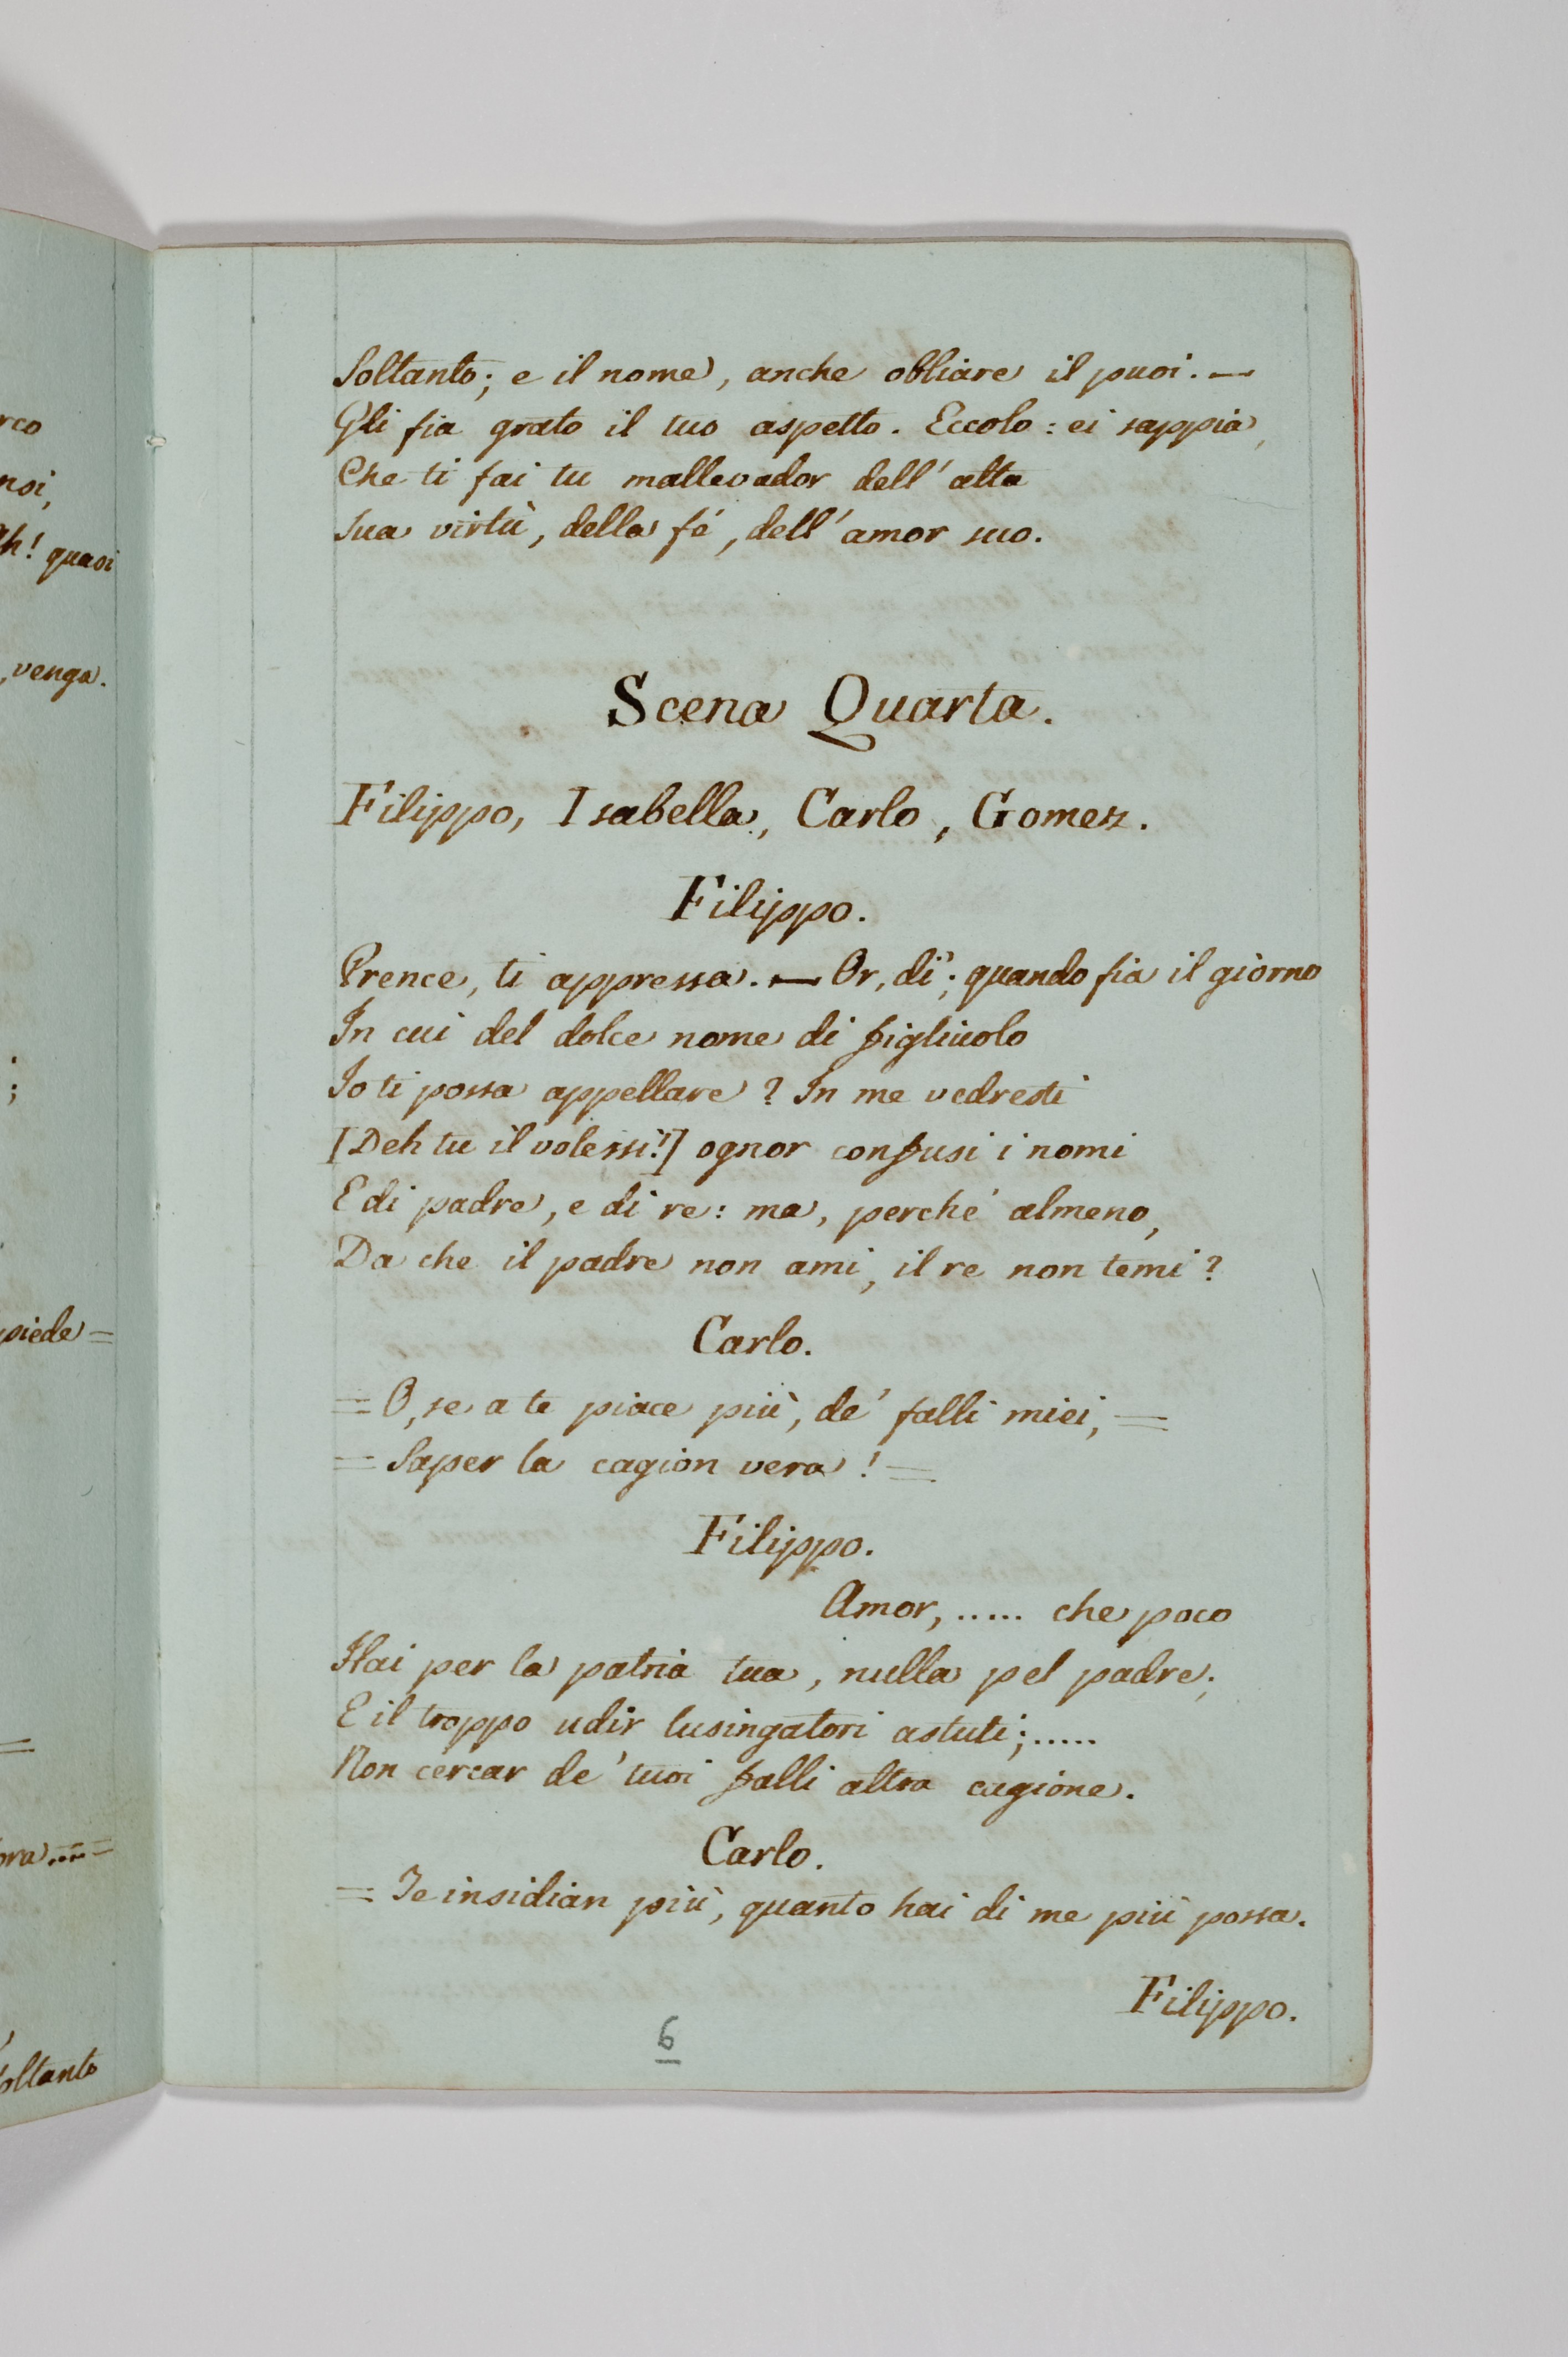 rco
noi,
ah! quasi
, venga.
;
piede =
ora....=
Soltanto
Soltanto; e il nome, anche obliare il puoi. —
Gli fia grato il tuo aspetto. Eccolo: ei sappia,
Che ti fai tu mallevador dell' alta
Sua virtù, della fé, dell' amor suo.
Scena Quarta.
Filippo, Isabella, Carlo, Gomez.
Filippo.
Prence, ti appressa. — Or, di'; quando fia il giorno
In cui del dolce nome di figliuolo
Io ti possa appellare? In me vedresti
[Deh tu il volessi!] ognor confusi i nomi
E di padre, e di re: ma, perché almeno,
Da che il padre non ami, il re non temi?
Carlo.
= O, se a te piace più, de' falli miei, =
= Saper la cagion vera! =
Filippo.
Amor, ..... che poco
Hai per la patria tua, nulla pel padre;
E il troppo udir lusingatori astuti; .....
Non cercar de' tuoi falli altra cagione.
Carlo.
= Te insidian più, quanto hai di me più possa.
Filippo.
6